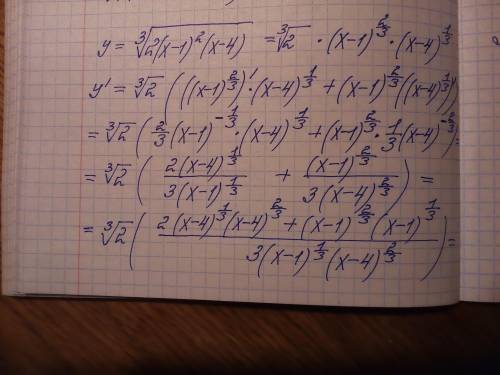 y = ∛(2(x-1)²(x-4)) = ∛2 · (x-1)^(2/3) · (x-4)^(1/3)
y' = ∛2 (((x-1)^(2/3))' · (x-4)^(1/3) + (x-1)^(2/3) ((x-4)^(1/3))')
= ∛2 (2/3 (x-1)^(-1/3) · (x-4)^(1/3) + (x-1)^(2/3) · 1/3 (x-4)^(-2/3)) =
= ∛2 ( 2(x-4)^(1/3) / 3(x-1)^(1/3) + (x-1)^(2/3) / 3(x-4)^(2/3) ) =
= ∛2 ( 2(x-4)^(1/3) (x-4)^(2/3) + (x-1)^(2/3) (x-1)^(1/3) / 3(x-1)^(1/3) (x-4)^(2/3) ) =